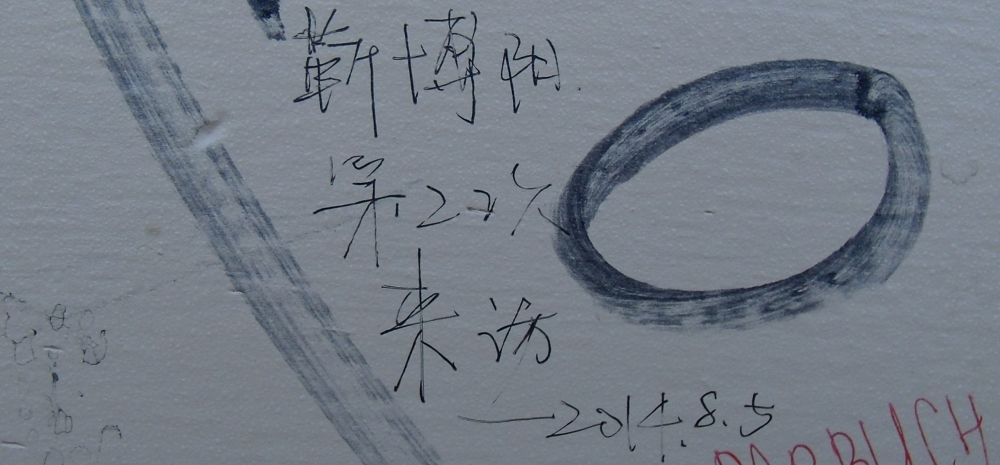 靳博阳
第22次
来访
—2014.8.5